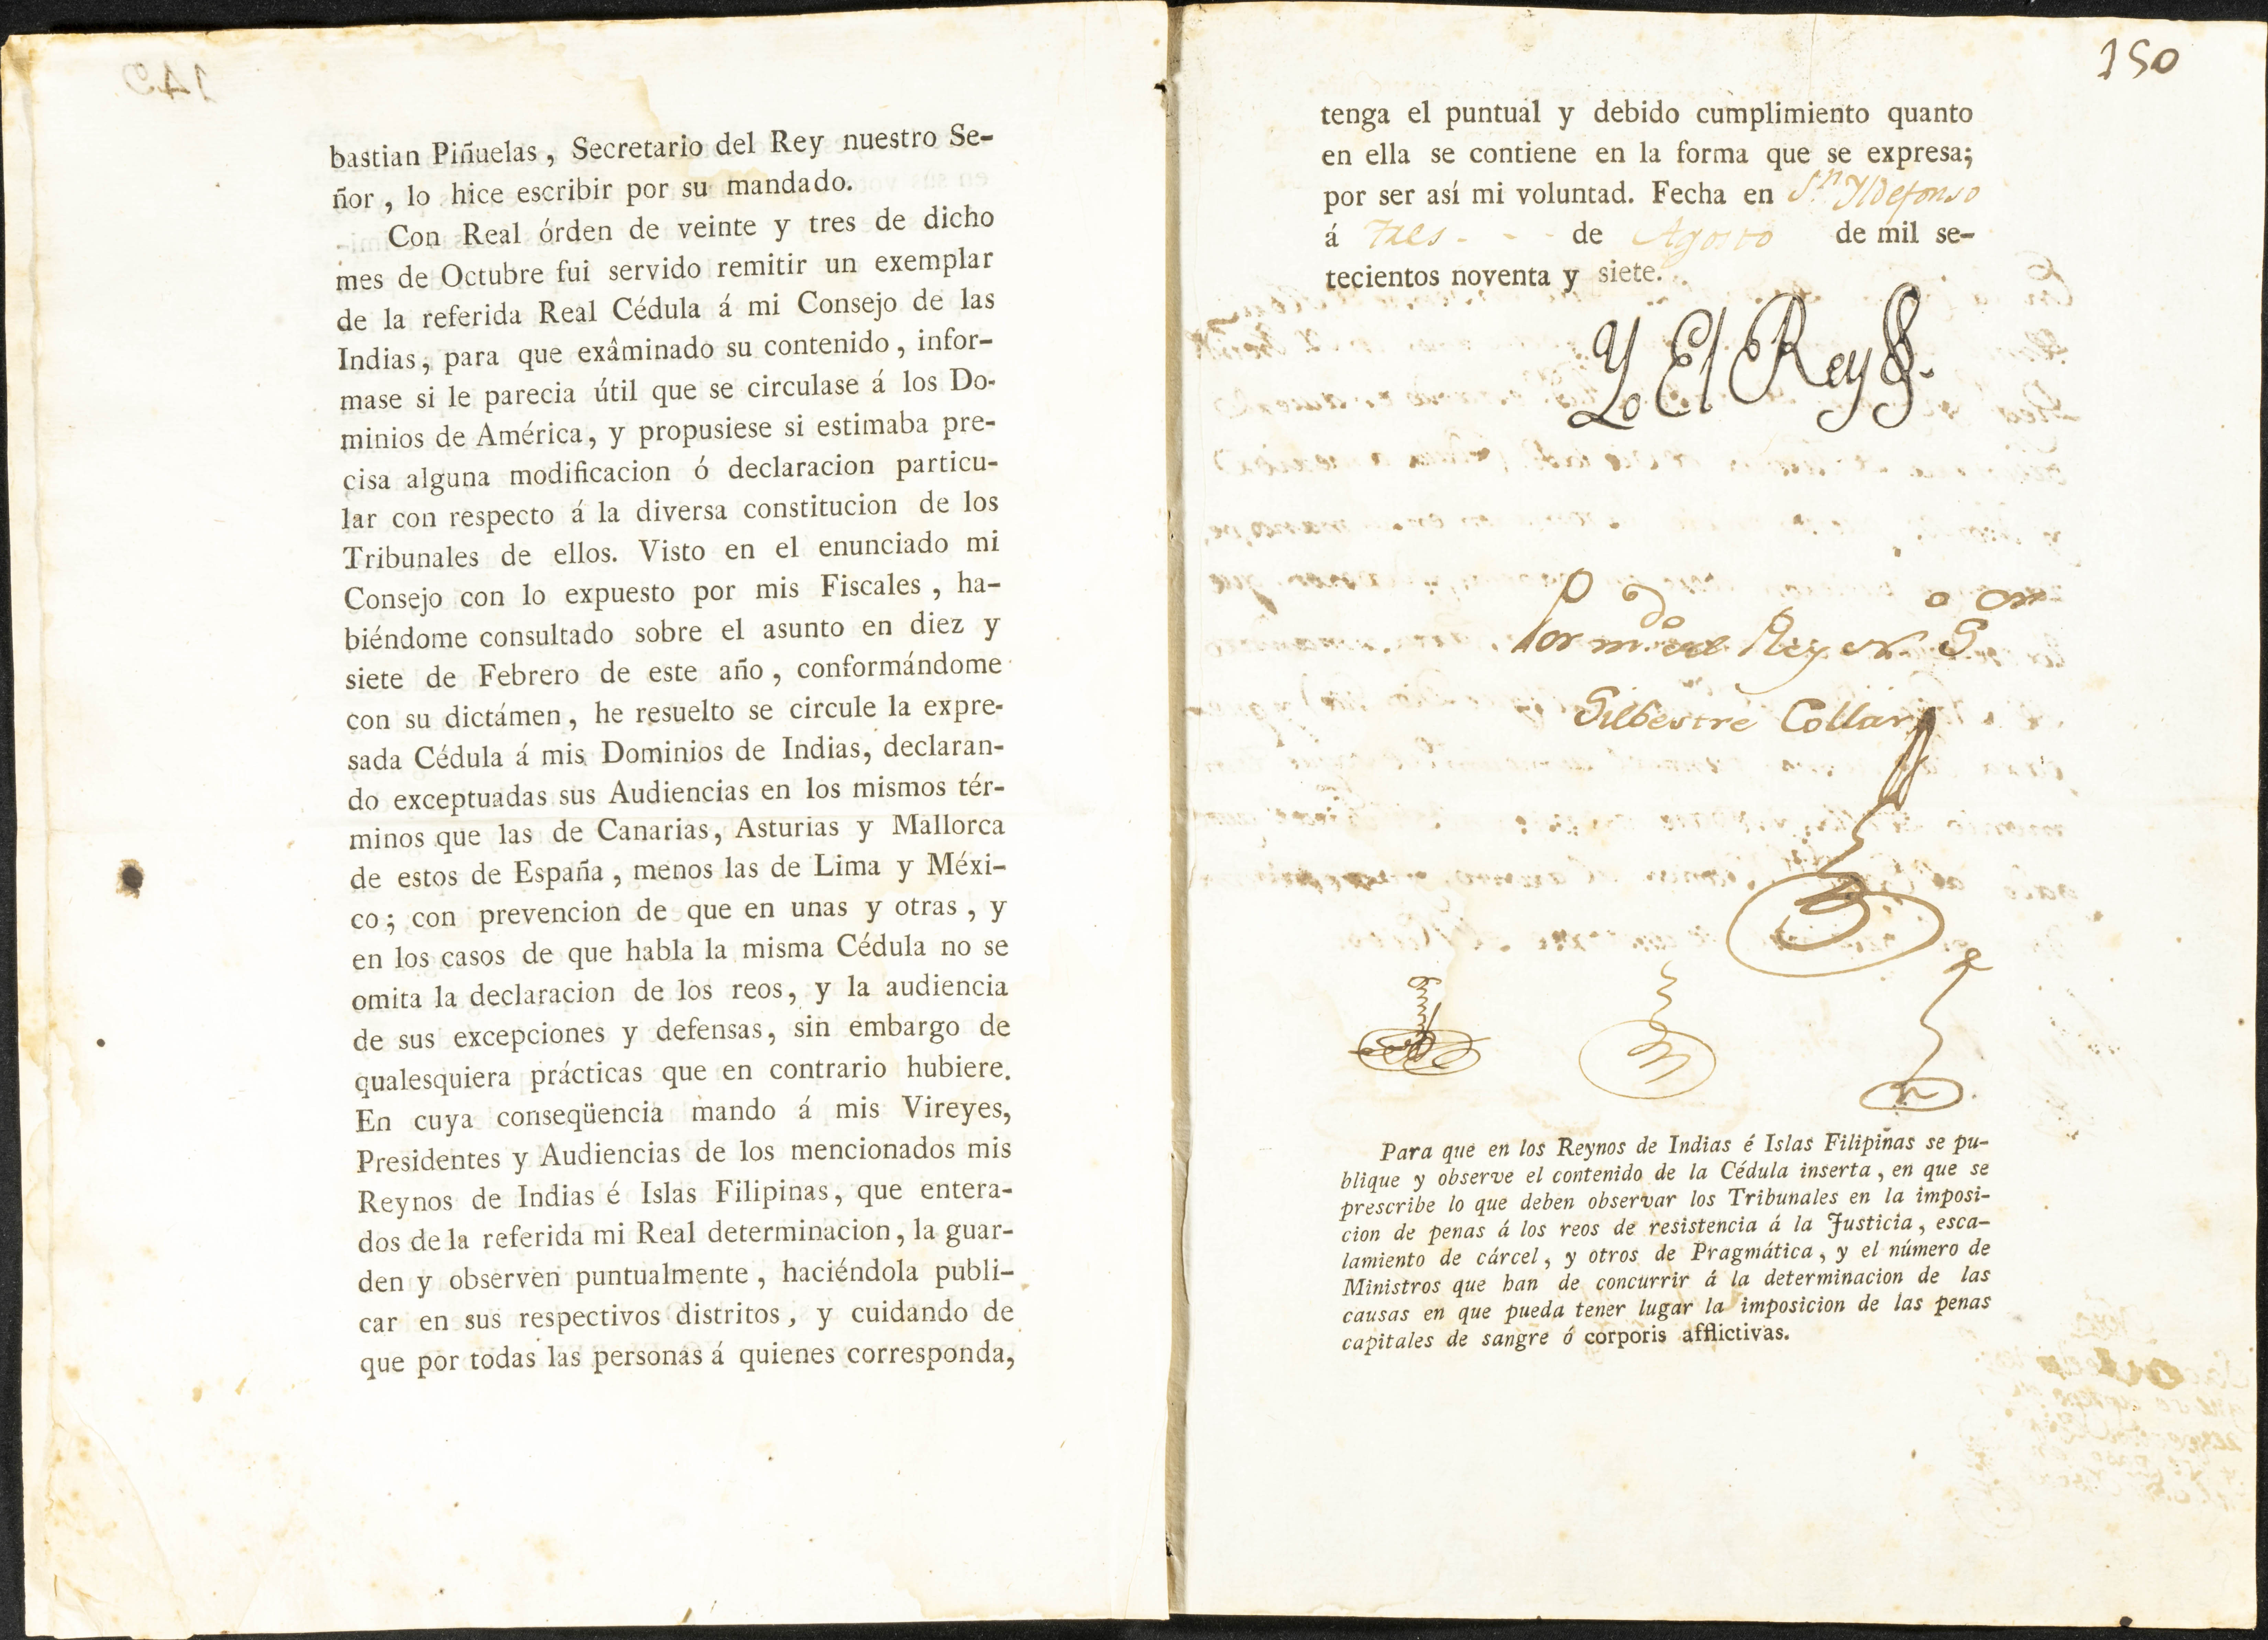 bastian Piñuelas, Secretario del Rey nuestro Se-
ñor, lo hice escribir por su mandado.
Con Real órden de veinte y tres de dicho
mes de Octubre fui servido remitir un exemplar
de la referida Real Cédula á mi Consejo de las
Indias, para que exâminado su contenido, infor-
mase si le parecia útil que se circulase á los Do-
minios de América, y propusiese si estimaba pre-
cisa alguna modificacion ó declaracion particu-
lar con respecto á la diversa constitucion de los
Tribunales de ellos. Visto en el enunciado mi
Consejo con lo expuesto por mis Fiscales, ha-
biéndome consultado sobre el asunto en diez y
siete de Febrero de este año, conformándome
con su dictámen, he resuelto se circule la expre-
sada Cédula á mis Dominios de Indias, declaran-
do exceptuadas sus Audiencias en los mismos tér-
minos que las de Canarias, Asturias y Mallorca
de estos de España, menos las de Lima y Méxi-
co; con prevencion de que en unas y otras, y
en los casos de que habla la misma Cédula no se
omita la declaracion de los reos, y la audiencia
de sus excepciones y defensas, sin embargo de
qualesquiera prácticas que en contrario hubiere.
En cuya conseqüencia mando á mis Vireyes,
Presidentes y Audiencias de los mencionados mis
Reynos de Indias é Islas Filipinas, que entera-
dos de la referida mi Real determinacion, la guar-
den y observen puntualmente, haciéndola publi-
car en sus respectivos distritos, y cuidando de
que por todas las personas á quienes corresponda,
150
tenga el puntual y debido cumplimiento quanto
en ella se contiene en la forma que se expresa;
por ser así mi voluntad. Fecha en Sn. Yldefonso
á tres - - - de Agosto de mil se-
tecientos noventa y siete.
Yo El Rey
Por mdo. del Rey N. S.
Silbestre Collar
Para que en los Reynos de Indias é Islas Filipinas se pu-
blique y observe el contenido de la Cédula inserta, en que se
prescribe lo que deben observar los Tribunales en la imposi-
cion de penas á los reos de resistencia á la Justicia, esca-
lamiento de cárcel, y otros de Pragmática, y el número de
Ministros que han de concurrir á la determinacion de las
causas en que pueda tener lugar la imposicion de las penas
capitales de sangre ó corporis afflictivas.